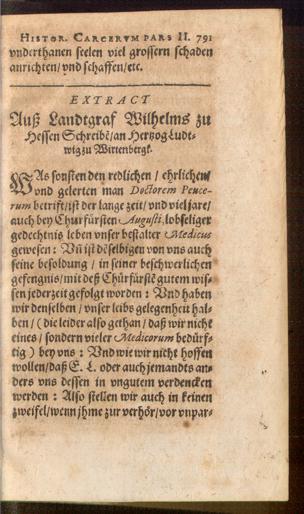 HISTOR. CARCERVM PARS II. 791
vnderthanen seelen viel grossern schaden
anrichten/ vnd schaffen/ etc.
EXTRACT
Auß Landtgraf Wilhelms zu
Hessen Schreibē/ an Hertzog Ludt-
wig zu Wirtenbergk.
WAs sonsten den redlichen / ehrlichen/
vnd gelerten man Doctorem Peuce-
rum betrifft/ ist der lange zeit/ vnd viel jare/
auch bey Churfürsten Augusti, lobseliger
gedechtnis leben vnser bestalter Medicus
gewesen: Vñ ist dēselbigen von vns auch
seine besoldung / in seiner beschwerlichen
gefengnis/ mit deß Churfürstē gutem wis-
sen jederzeit gefolgt worden : Vnd haben
wir denselben / vnser leibs gelegenheit hal-
ben/ (die leider also gethan/ daß wir nicht
eines/ sondern vieler Medicorum bedürf-
tig) bey vns : Vnd wie wir nicht hoffen
wollen/ daß E. L. oder auch jemandts an-
ders vns dessen in vngutem verdencken
werden : Also stellen wir auch in keinen
zweifel/ wenn jhme zur verhör/ vor vnpar-